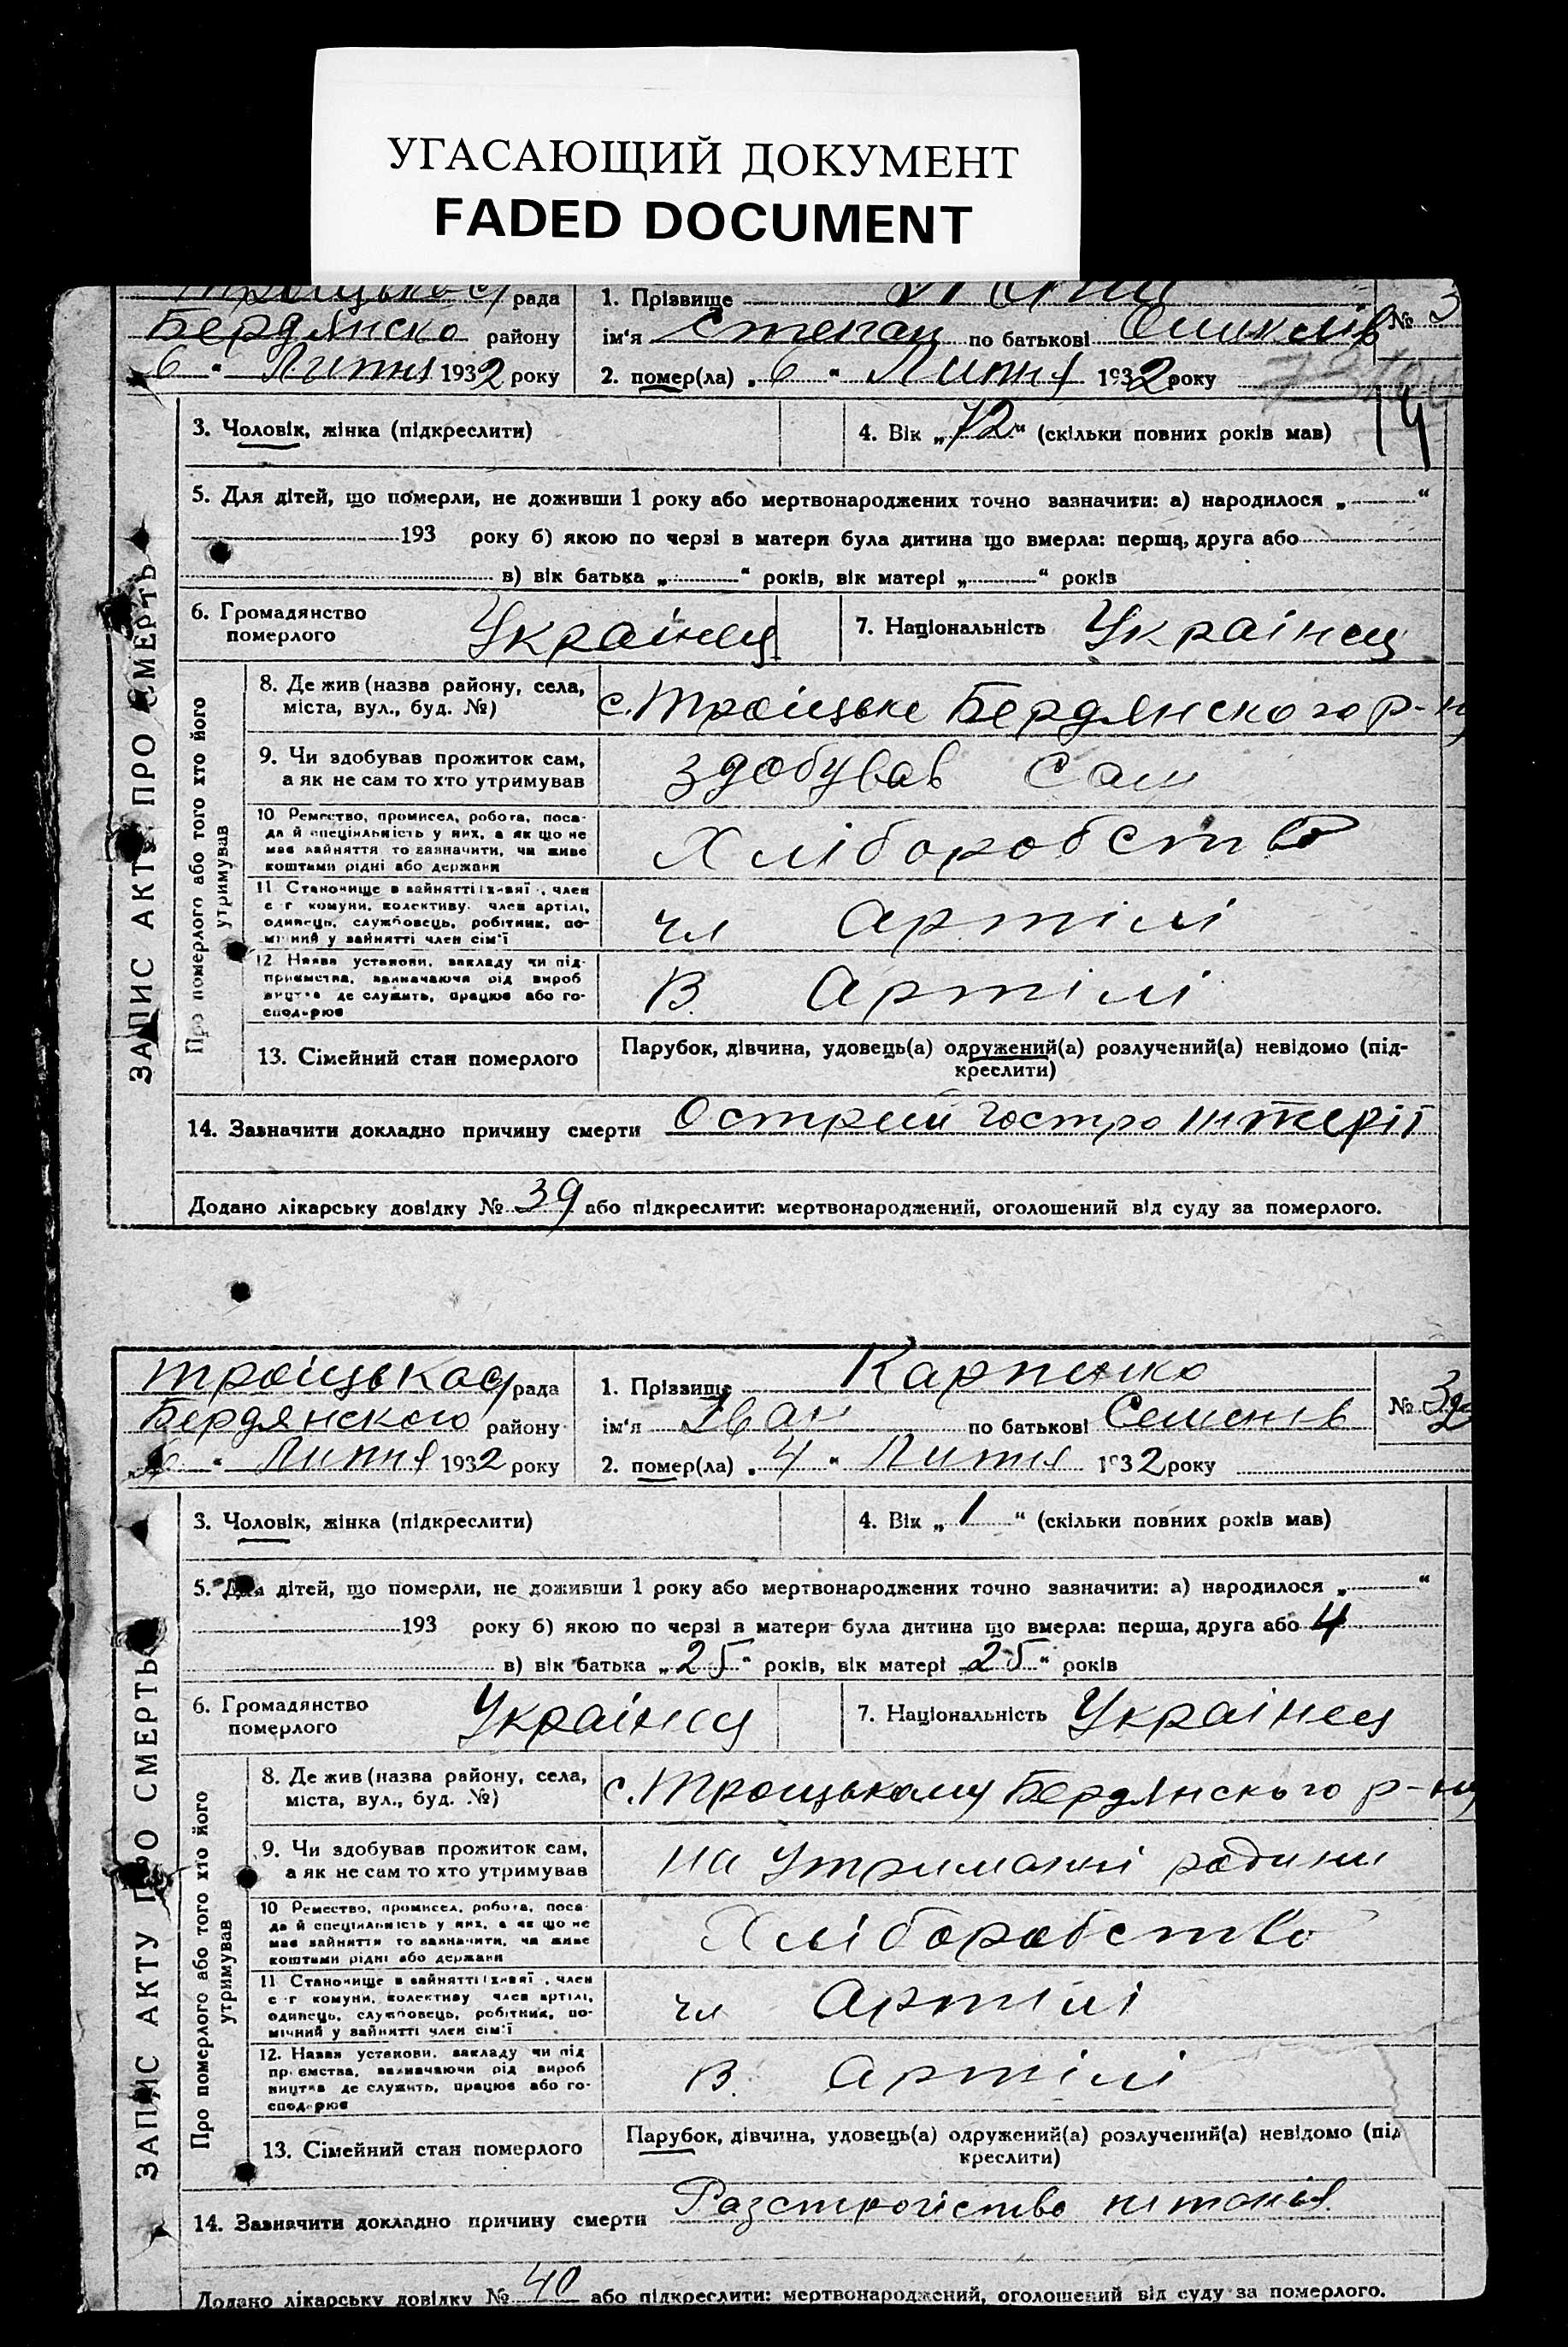 УГАСАЮЩИЙ ДОКУМЕНТ
FADED DOCUMENT
рада
1. Прізвище
Бердянско району
ім'я Степан по батькові
№ 3
6 " Липня 1932 року
2. помер(ла) „ 6 " Липня 1932 року
14
3. Чоловік, жінка (підкреслити)
4. Вік „ 72 " (скільки повних років мав)
5. Для дітей, що померли, не доживши 1 року або мертвонароджених точно зазначити: а) народилося „ "
193 року б) якою по черзі в матери була дитина що вмерла: перша, друга або
в) вік батька „ " років, вік матері „ " років
6. Громадянство
померлого
Украінец
7. Національність Украінец
8. Де жив (назва району, села,
міста, вул., буд. №)
с. Троіцьке Бердянского р-ну
9. Чи здобував прожиток сам,
а як не сам то хто утримував
здобував сам
10 Ремество, промисел, робота, поса-
да й спеціяльність у них, а як що не
має зайняття то зазначити, чи живе
коштами рідні або держави
Хліборобство
11 Становище в зайнятті член
с г комуни, колективу. член артілі,
одинець, службовець, робітник, по-
мічний у зайнятті член сім'ї
чл Артілі
12 Назва установи, закладу чи під-
приємства, зазначаючи рід вироб
ництва де служить, працює або го-
сподарює
В. Артілі
13. Сімейний стан померлого
Парубок, дівчина, удовець(а) одружений(а) розлучений(а) невідомо (під-
креслити)
14. Зазначити докладно причину смерти Острий гостро
Додано лікарську довідку № 39 або підкреслити: мертвонароджений, оголошений від суду за померлого.
ЗАПИС АКТУ ПРО СМЕРТЬ
Про померлого або того хто його
утримував
Троіцькоі рада
1. Прізвище Карпенко
Бердянского району
ім'я Іван по батькові Семенів
№ 32
6 " Липня 1932 року
2. помер(ла) „ 4 " Липня 1932 року
3. Чоловік, жінка (підкреслити)
4. Вік „ 1 " (скільки повних років мав)
5. Для дітей, що померли, не доживши 1 року або мертвонароджених точно зазначити: а) народилося „ "
193 року б) якою по черзі в матери була дитина що вмерла: перша, друга або 4
в) вік батька „ 25 " років, вік матері „ 25 " років
6. Громадянство
померлого
Украінец
7. Національність Украінец
8. Де жив (назва району, села,
міста, вул., буд. №)
с. Троицькому Бердянского р-ну
9. Чи здобував прожиток сам,
а як не сам то хто утримував
на утриманні родини
10 Ремество, промисел, робота, поса-
да й спеціяльність у них, а як що не
має зайняття то зазначити, чи живе
коштами рідні або держави
Хліборобство
11 Становище в зайнятті член
с г комуни, колективу член артілі,
одинець, службовець, робітник, по-
мічний у зайнятті член сім'ї
чл Артілі
12. Назва установи, закладу чи під
приємства, зазначаючи рід вироб
ництва де служить, працює або го-
сподарює
В. Артілі
13. Сімейний стан померлого
Парубок, дівчина, удовець(а) одружений(а) розлучений(а) невідомо (під
креслити)
14. Зазначити докладно причину смерти Разстройство пітанія
Додано лікарську довідку № 40 або підкреслити: мертвонароджений, оголошений від суду за померлого.
ЗАПИС АКТУ ПРО СМЕРТЬ
Про померлого або того хто його
утримував